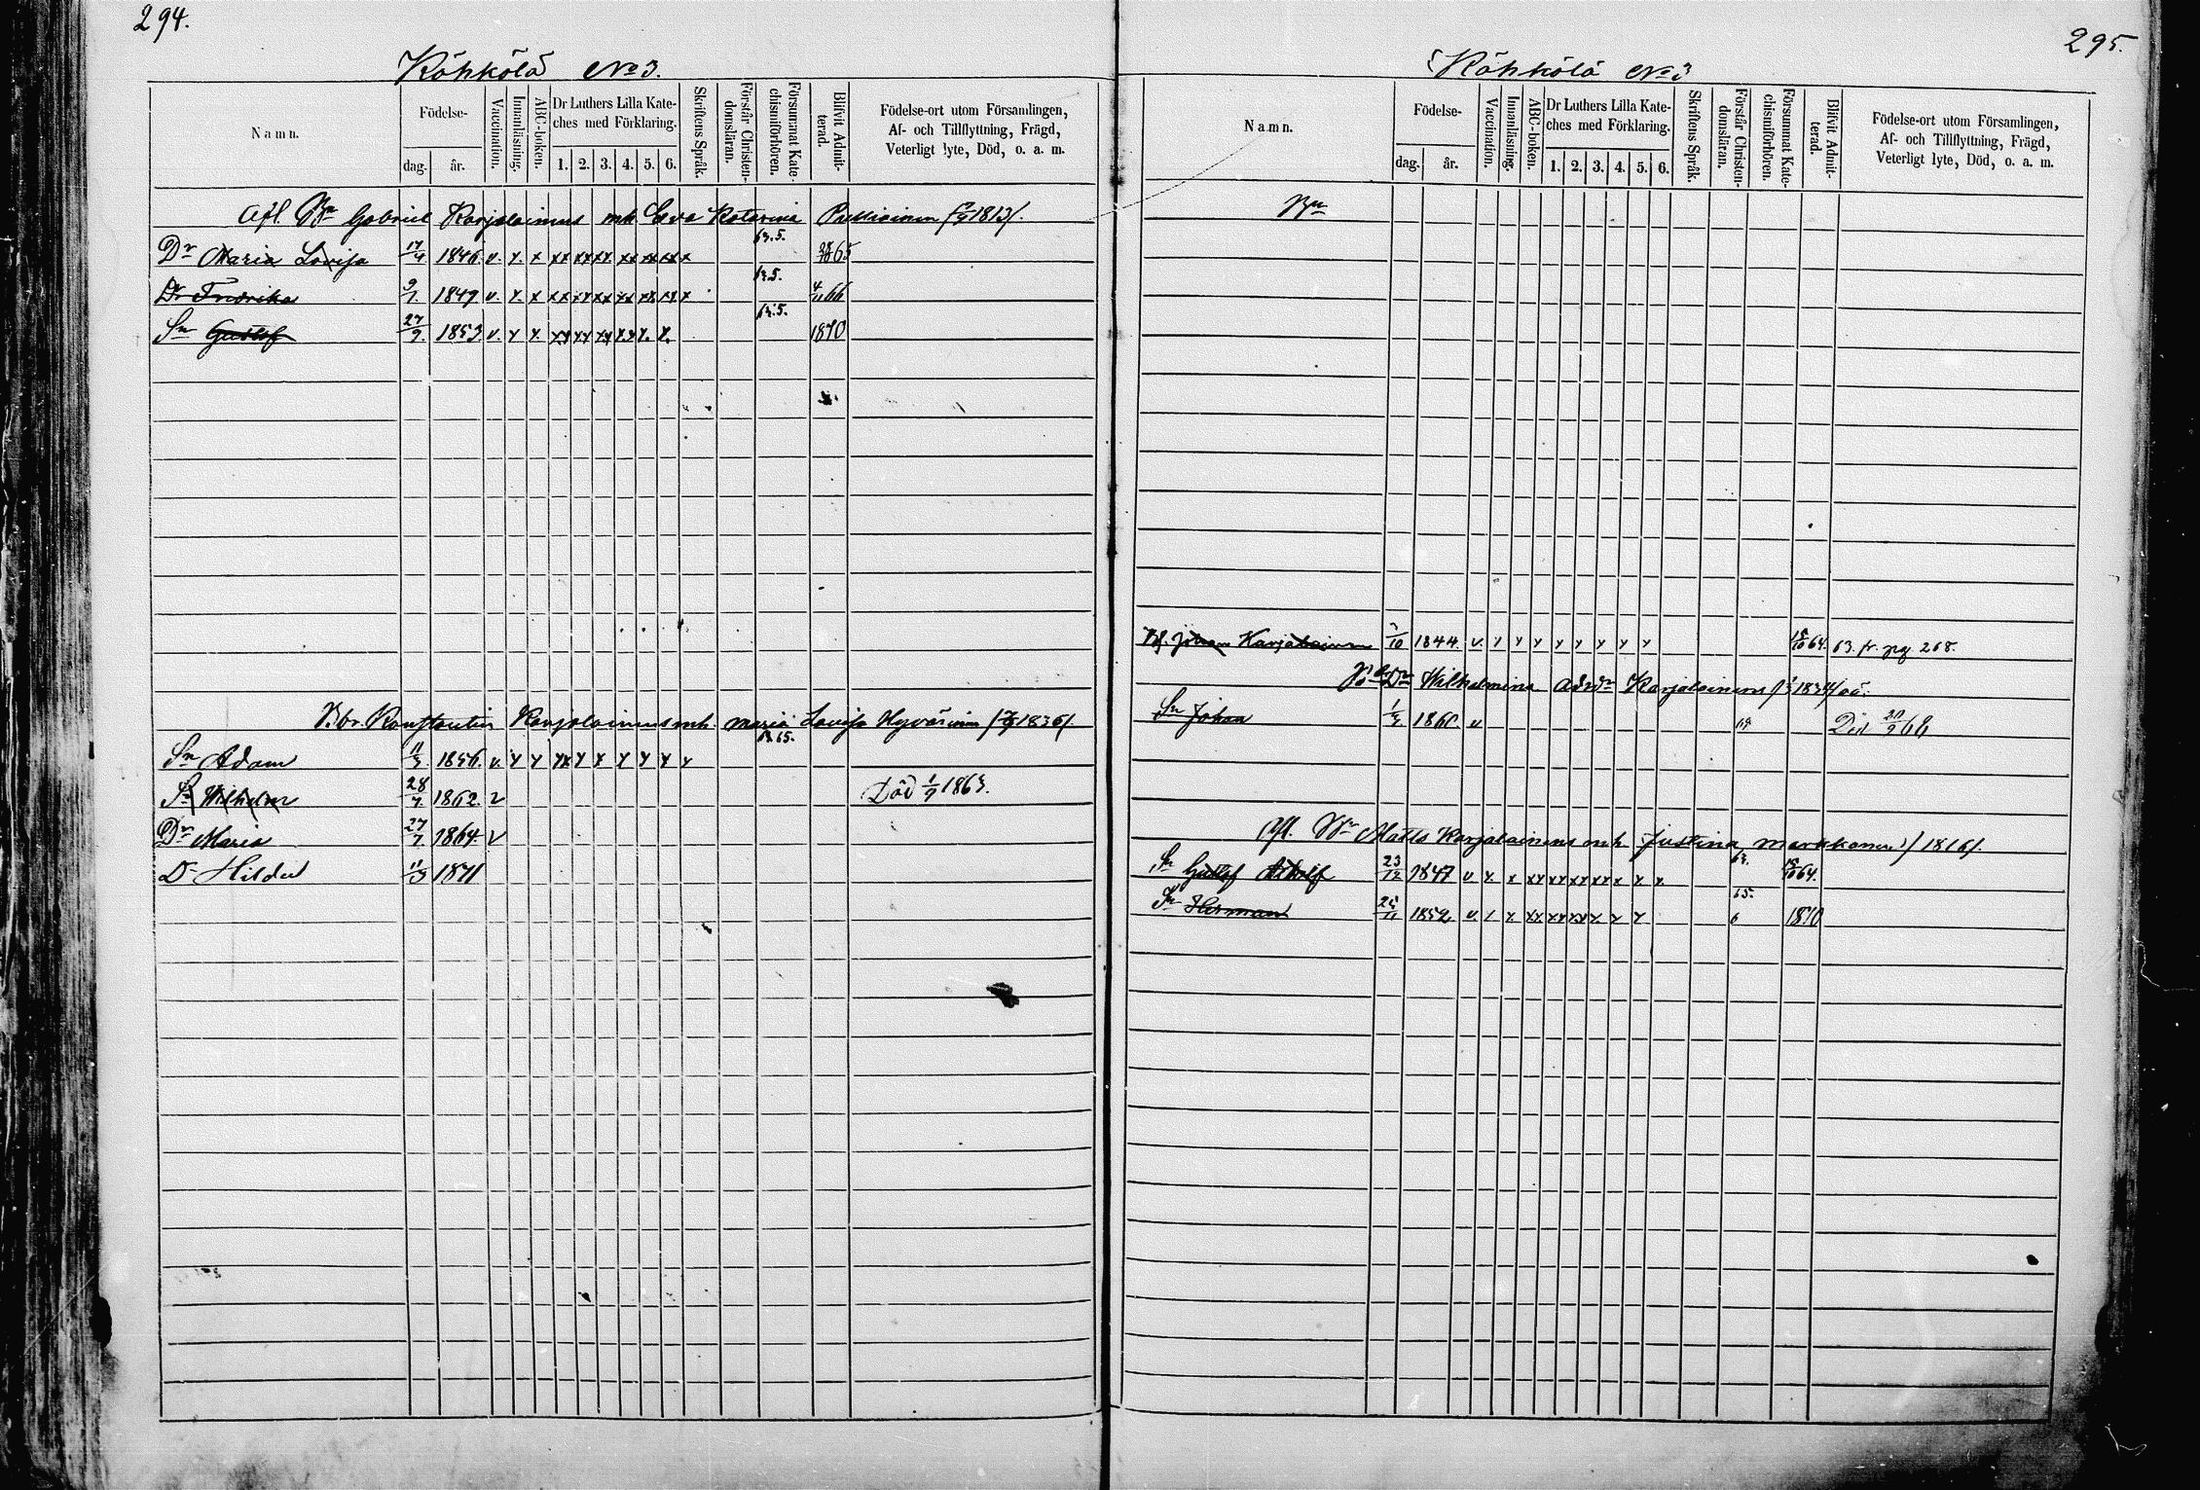 294.
Köhkölä No 3.
Namn.
Födelse-
dag.
år.
Vaccination.
Innanläsning.
ABC-boken.
Dr Luthers Lilla Kate-
ches med Förklaring.
1. 2. 3. 4. 5. 6.
Skriftens Språk.
Förstår Christen-
domsläran.
Försummat Kate-
chismiförhören.
Blifvit Admit-
terad.
Födelse-ort utom Församlingen,
Af- och Tillflyttning, Frägd,
Veterligt lyte, Död, o. a. m.
Afl. Bn Gabriel Karjalainens mh. Eva Katarina Pulliainen 1813/.
63.5.
Dr Maria Lovisa 17/4 1846. v. x. x xx xx xx xx xx xx x 65
63.5.
Dr Fredrika 9/1 1849 v. x x xx xx xx xx xx xx x 4/11 66
63.5.
Sn Gustaf 27/9. 1853. v. x x. xx xx xx x x x. x. 1870
B. br. Konstantin Karjalainens mh. Maria Lovisa Hyvärinen 1836/.
65.
Sn Adam 11/3 1856. v. x x xx x x x x x x
Sn Wilhelm 28/7 1862. v Död 1/9 1863.
Dr Maria 27/7 1864. v
Dr Hilda 11/3 1871
295.
Köhkölä No 3
Namn.
Födelse-
dag.
år.
Vaccination.
Innanläsning.
ABC-boken.
Dr Luthers Lilla Kate-
ches med Förklaring.
1. 2. 3. 4. 5. 6.
Skriftens Språk.
Förstår Christen-
domsläran.
Försummat Kate-
chismiförhören.
Blifvit Admit-
terad.
Födelse-ort utom Församlingen,
Af- och Tillflyttning, Frägd,
Veterligt lyte, Död, o. a. m.
Bn
Johan Karjalainen /10 1844 v. x x x x x x x x 64. 63. fr. pg. 268.
Dr Wilhelmina Karjalainens 1834/
Sn Johan 1/3 1860 v Död 20/9 68
Afl. Bn Matts Karjalainens mh Justina Markkanen 1816/.
63.
Sn Gustaf Adolf 23/12 1847 v x x xx xx xx xx x x x 64.
65.
Sn Herman 25/11 1852 v. x x xx xx xx x x x 6 1870